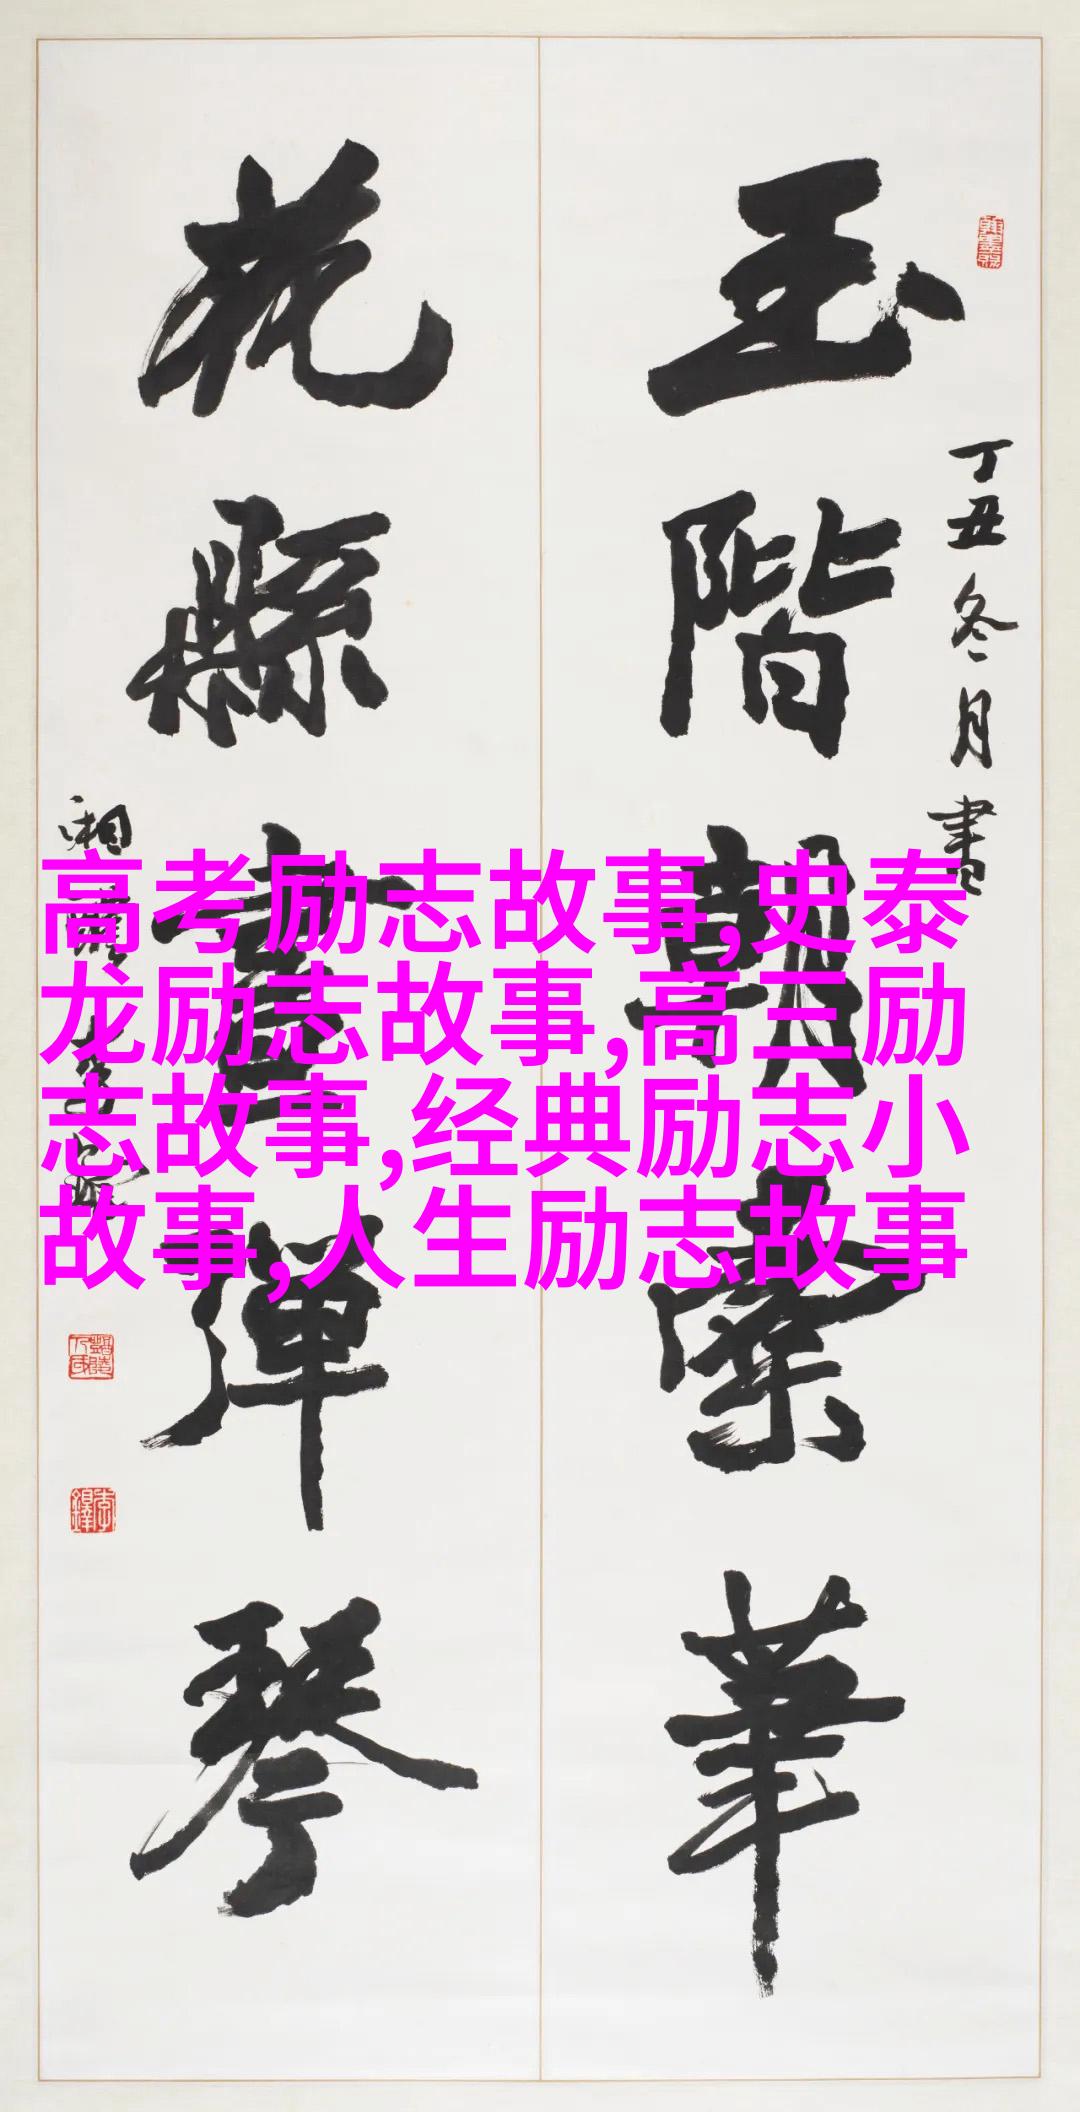 玉階朝紫華
丁丑冬月書
花縣畫彈琴
高考励志故事,史泰
龙励志故事,高三励
志故事,经典励志小
故事,人生励志故事